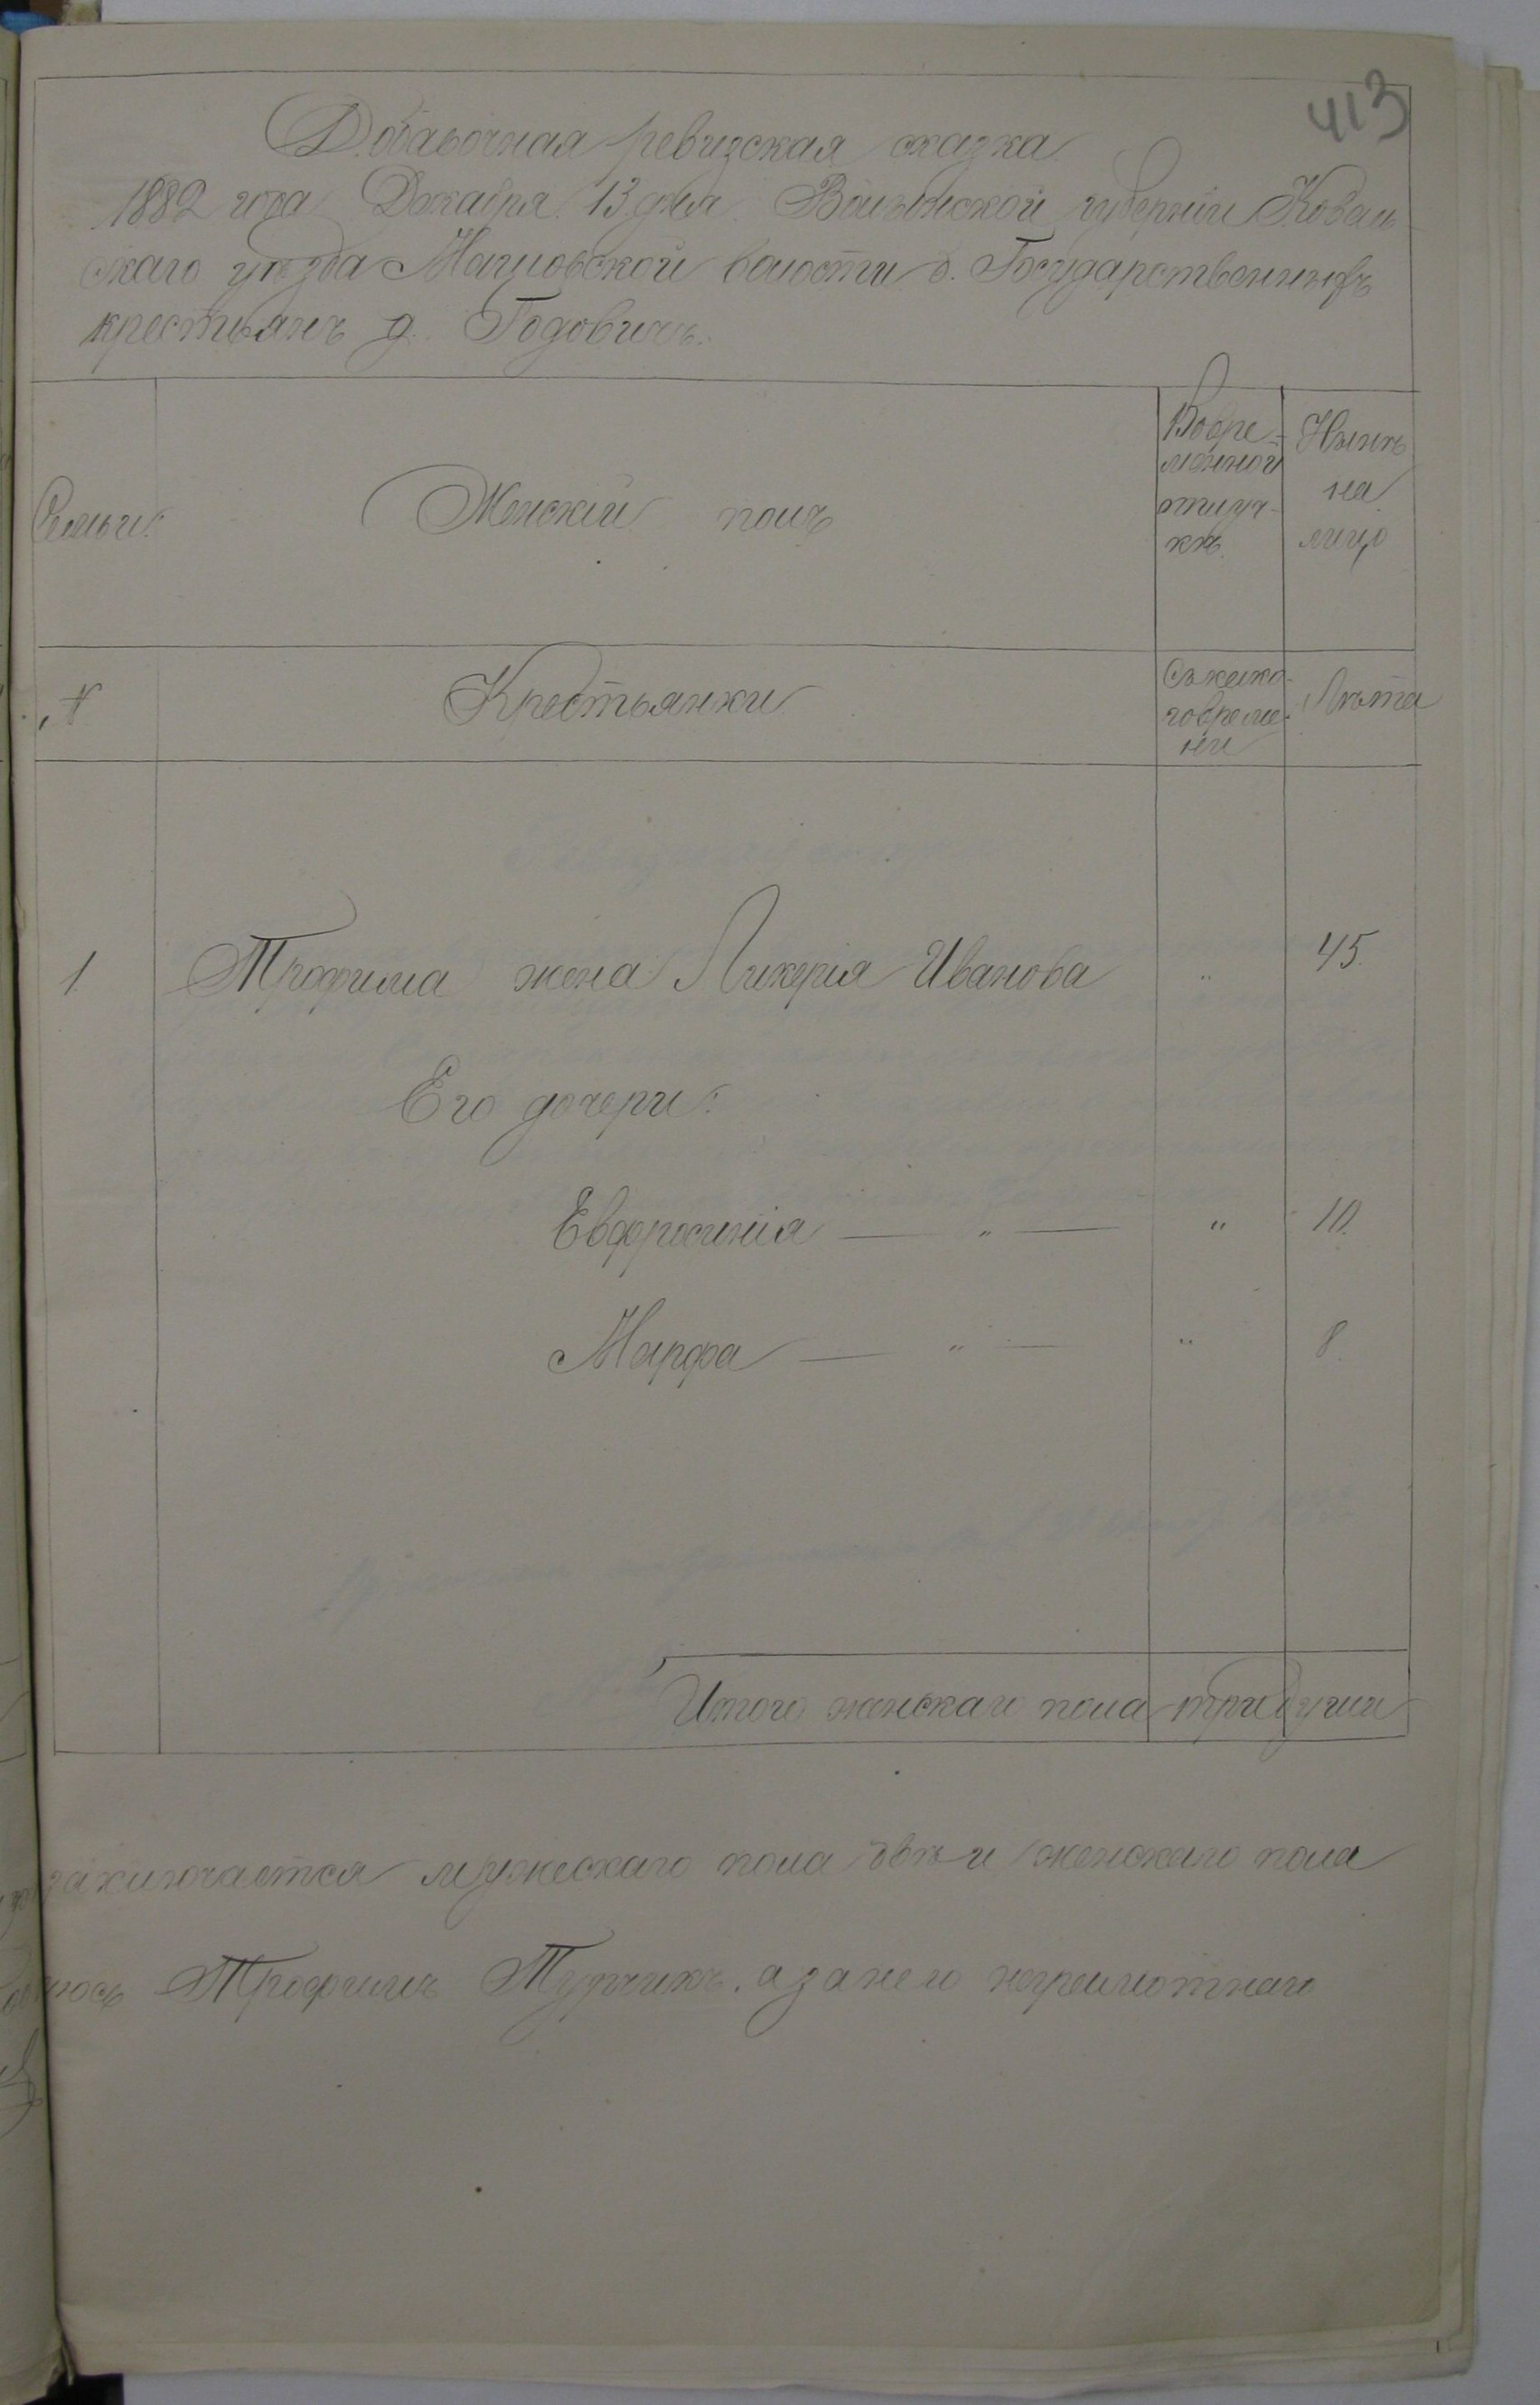 413
Добавочная ревизская сказка
1882 года Декабря 13 дня Волынской губерніи Ковель
скаго уѣзда Мациовской волости б. Государственныхъ
крестьянъ д. Годовичъ.
Семьи.
Женскій полъ
Вовре-
менной
отлуч-
кѣ.
Нынѣ
на
лицо
№
Крестьянки
Съ како-
го време-
ни
Лѣта
1. Трофима жена Ликерія Иванова " 45.
Его дочери:
Евфросинія — " — " 10.
Марфа — " — " 8.
Итого женскаго пола три души
заключается мужескаго пола двѣ и женскаго пола
Трофимъ Турчикъ. а за него неграмотнаго